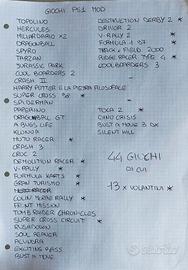 GIOCHI PS1 MOD
TOPOLINO
HERCULES
MILIARDARIO X2
DRAGONBALL
SPYRO
TARZAN
JURASSIC PARK
COOL BOARDERS 2
CRASH II
HARRY POTTER E LA PIETRA FILOSOFALE
SUPER CROSS 98 *
SPIDERMAN
PAPERINO
DRAGONBALL GT
A BUGS LIFE
KLONOA
MOTO RACER *
CRASH 3
CROC 2
DEMOLITION RACER *
V-RALLY *
FORMULA KARTS *
GRAN TURISMO *
COLIN MCRAE RALLY *
FRONT MISSION
TOMB RAIDER CHRONICLES
SUPER CROSS CIRCUIT *
RUSHDOWN
SOUL REAPER
ALUNDRA
EXCITING BASS
BUST A MOVE
DESTRUCTION DERBY 2 *
DRIVER 2
V-RALLY 2 *
FORMULA 1 97 *
TRACK & FIELD 2000
RIDGE RACER TYPE 4 *
COOL BOARDERS 3
TOCA 2 *
DINO CRISIS
BUST A MOVE 3 DX
SILENT HILL
44 GIOCHI
DI CUI
13 X VOLANTINO *
Subito